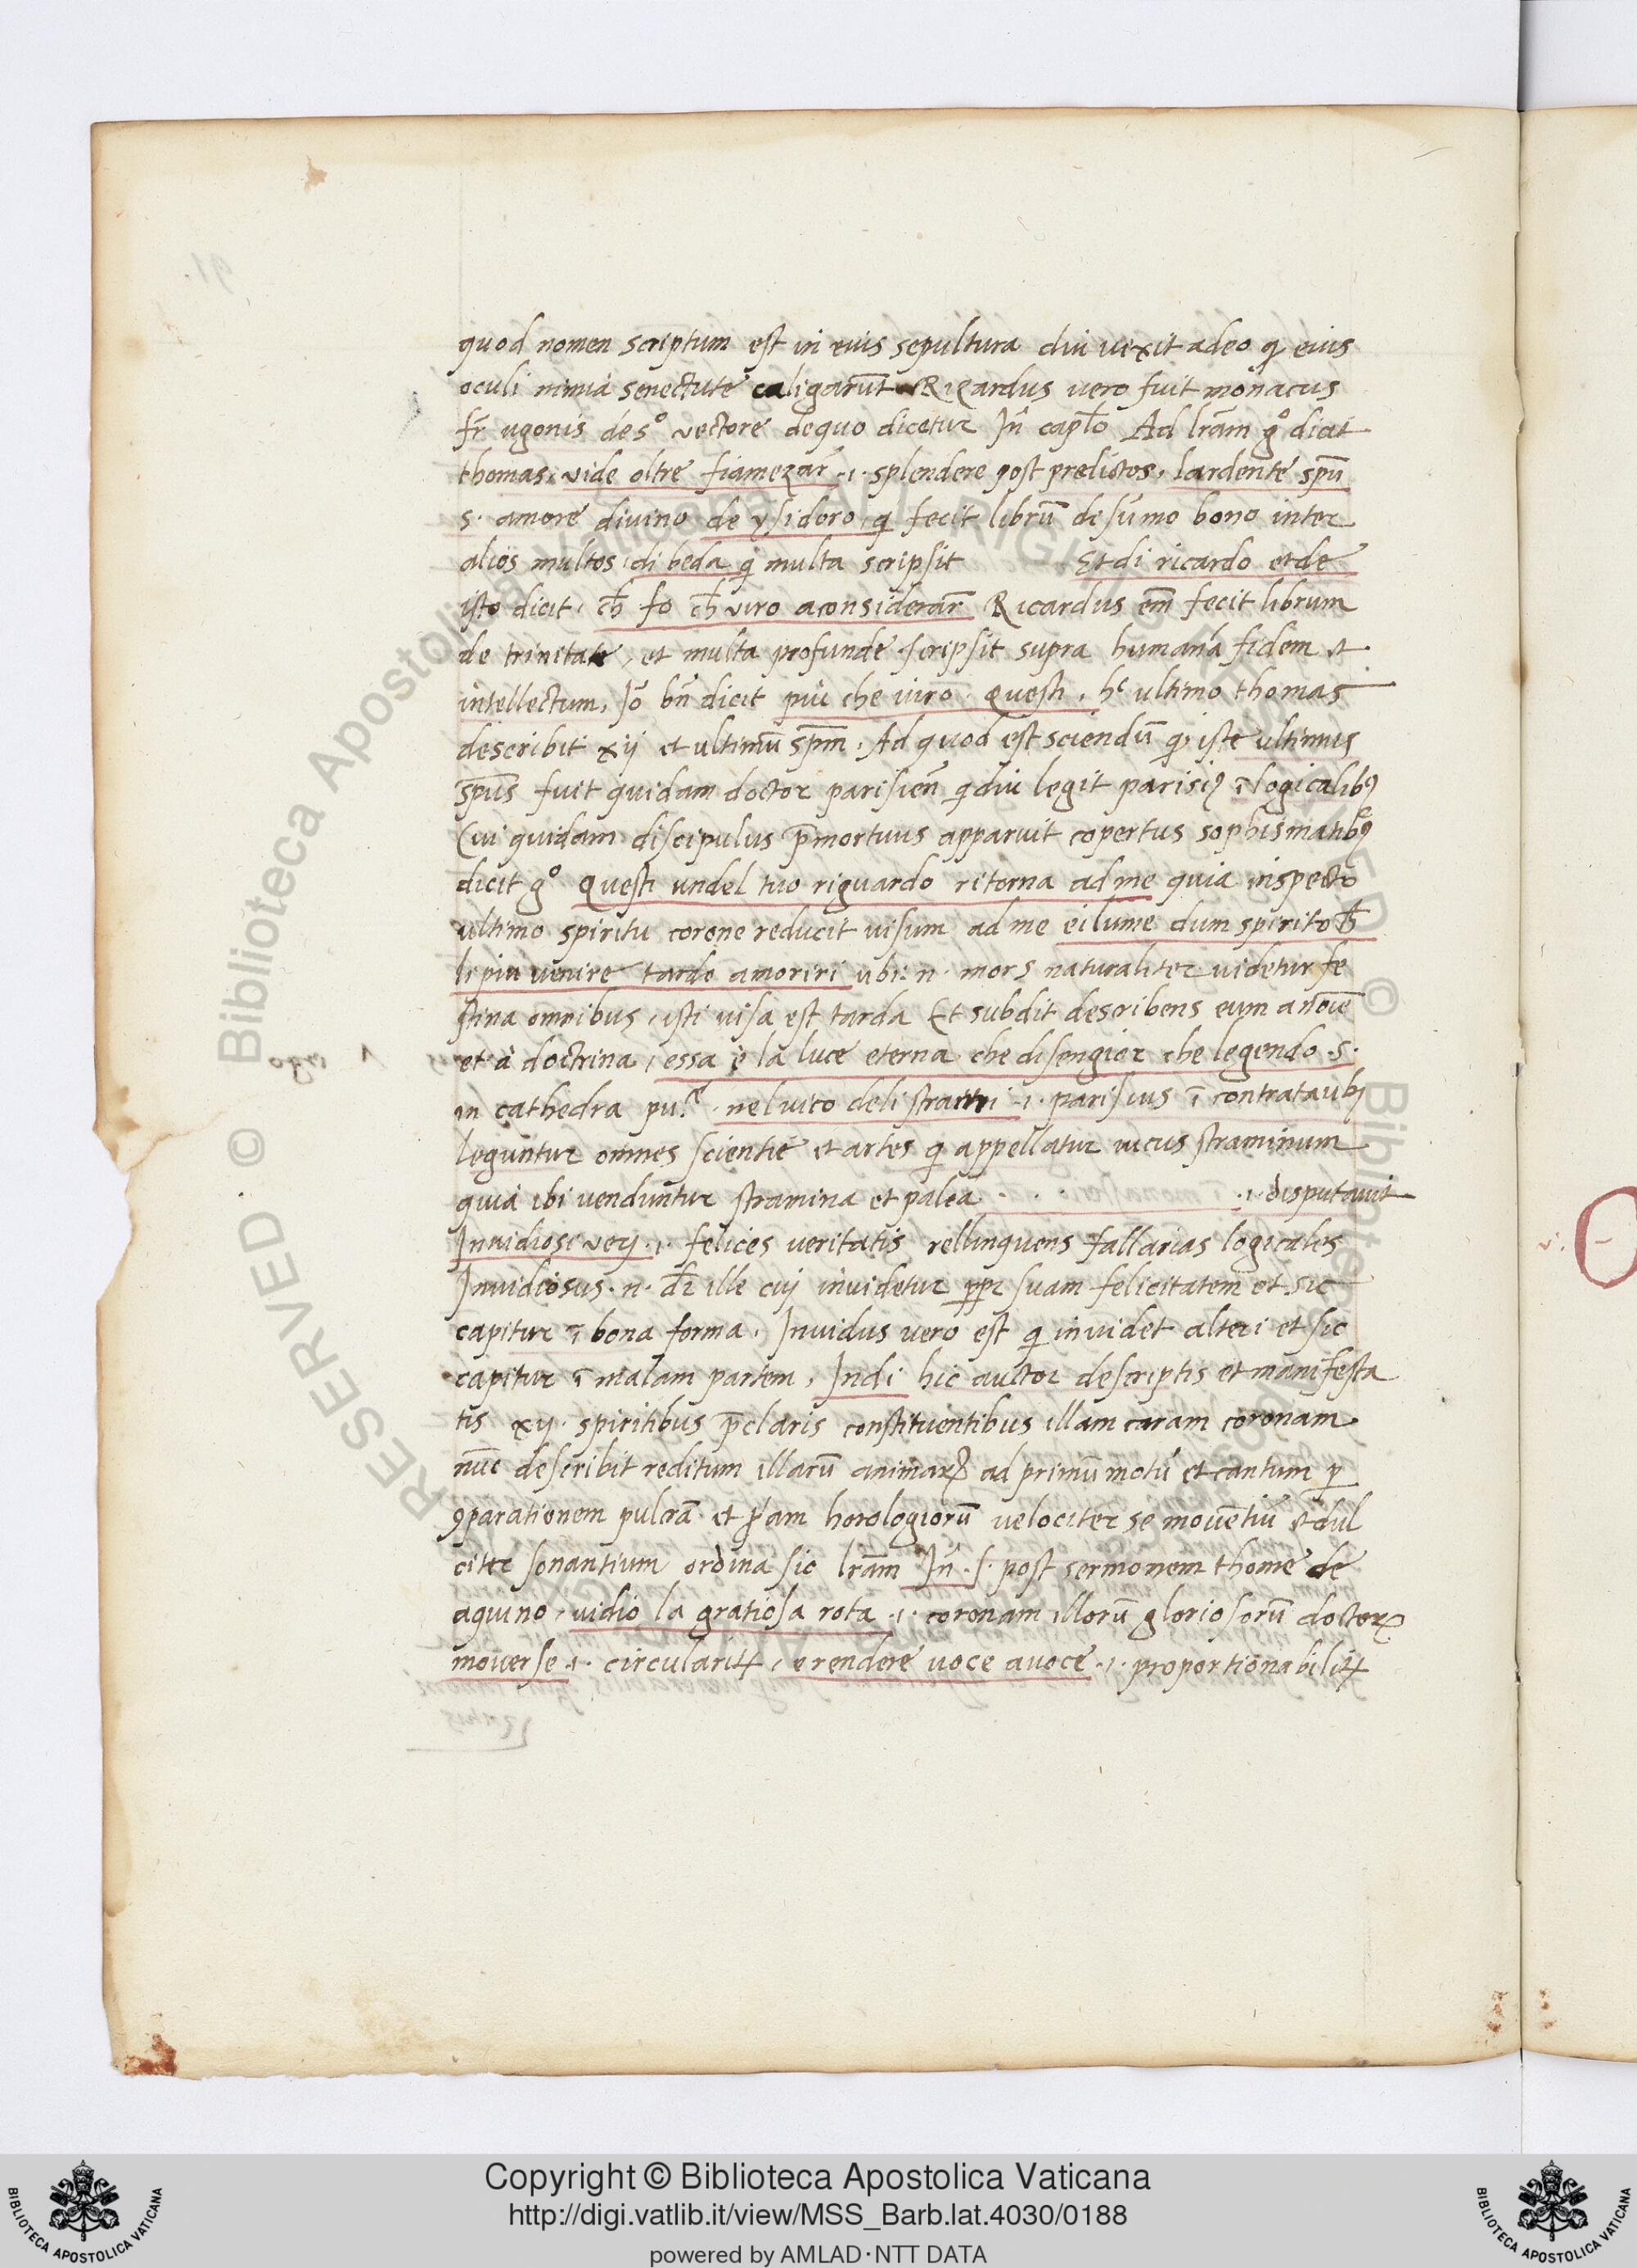 quod nomen scriptum est in eius sepultura diu uixit adeo q̨ eius
oculi nimia senectute caligarūt Riçardus vero fuit monacus
fr̄ ugonis de s.º vectore dequo dicetur Jn̄ cap̄lo Ad lr̄am gº dicit
thomas, vide oltre fiamezar .ı. splendere post predictos, lardente spū
s. amore divino de ysidoro q̨ fecit librū de sūmo bono inter
alios multos, di beda q̨ multa scripsit Et di ricardo et de
isto dicit, ch̄ fo ch̄ viro aconsiderar̄ Ricardus em̄ fecit librum
de trinitate, et multa profunde scripsit supra humanā fidem et
intellectum, Jō bn̄ dicit piu che iiro. Questi, hc ultimo thomas
describit xij et ultimū sp̄m. Ad quod est sciendū q̨ iste ultimus
sp̄us fuit quidam doctor parisien̄ q̨ diu legit parisiꝰ ī logicalibꝰ
Cui quidam discipulus p̄mortuus apparuit copertus sophismatibꝰ
dicit gº Questi undel tuo riguardo ritorna ad me quia inspecto
ultimo spiritu corone reducit uisum ad me ei lume dum spirito ch̄
li piu venire tardo amoriri ubi. n. mors naturaliter videtur fe
stina omnibus, isti uisa est tarda Et subdit describens eum a noīe
et à doctrina, essa è la luce eterna che disengior che legendo .s.
in cathedra pu.ᶜᵃ nel vico deli strami .ı. parisius ī contrata ubj
leguntur omnes scientie et artes q̨ appellatur uicus straminum
quia ibi venduntur stramina et palea .ı. disputauit
Jnuidiosi verj .ı. felices veritatis rellinquens fallacias logicales
Jnuidiosus .n. dr̄ ille cuj inuidetur ꝓpr suam felicitatem et sic
capitur ī bona forma, Jnuidus vero est q̨ inuidet alteri et sic
capitur ī malam partem, Jndi hic auctor descriptis et manifesta
tis xij. spiritibus p̄claris constituentibus illam caram coronam
nūc describit reditum illarū animarꝝ ad primū motū et cantum ꝑ
ꝯparationem pulcrā et ꝓ'am horologiorū velociter se mouētiū et dul
citer sonantium ordina sic lr̄am Jn̄ .s. post sermonem thome de
aquino, vidio la gratiosa rota .ı. coronam illorū gloriosorū doctorꝝ
mouerse .ı. circularitꝛ, e rendere uoce auoce .ı. proportionabilitꝛ
Copyright © Biblioteca Apostolica Vaticana
http://digi.vatlib.it/view/MSS_Barb.lat.4030/0188
powered by AMLAD·NTT DATA
BIBLIOTECA APOSTOLICA VATICANA
BIBLIOTECA APOSTOLICA VATICANA